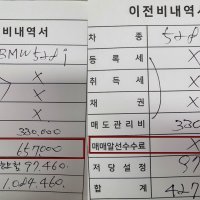 비내역서
BMW 528i
X
X
X
330,000
657000
97.460.
1,084.460.
이전비내역서
차 종 528i
등 록 세 X
취 득 세 X
채 권 X
매도관리비 330
매매알선수수료 X
저당설정 97
합 계 427